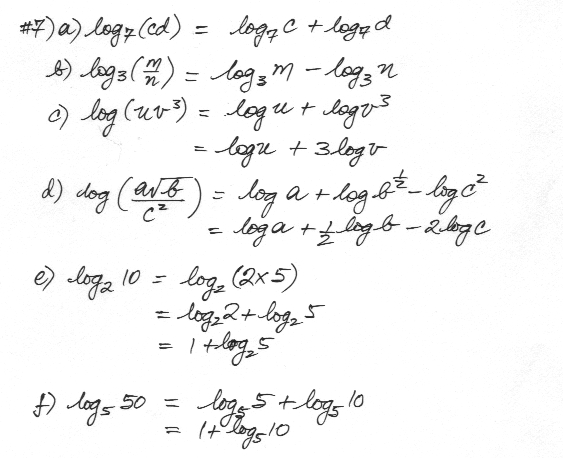 #7) a) log₇(cd) = log₇c + log₇d
b) log₃(m/n) = log₃m - log₃n
c) log(uv³) = log u + log v³
= log u + 3 log v
d) log(a√b/c²) = log a + log b^½ - log c²
= log a + ½ log b - 2 log c
e) log₂ 10 = log₂ (2×5)
= log₂2 + log₂5
= 1 + log₂5
f) log₅ 50 = log₅5 + log₅10
= 1 + log₅10